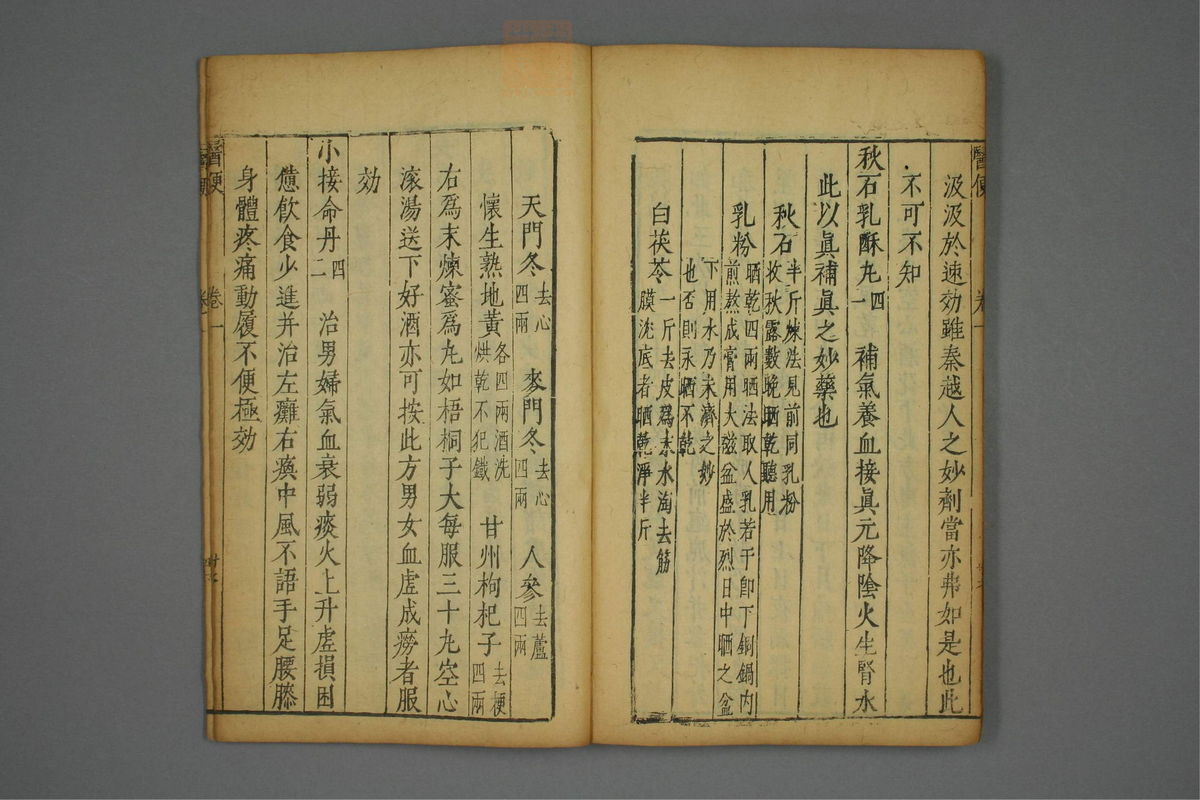 醫便
卷一
汲汲於速効雖秦越人之妙劑當亦弗如是也此
不可不知
秋石乳酥丸四一 補氣養血接眞元降陰火生腎水
此以眞補眞之妙藥也
秋石半斤煉法見前同乳粉收秋露數晚晒乾聽用
乳粉晒乾四兩晒法取人乳若干卽下銅鍋內煎熬成膏用大磁盆盛於烈日中晒之盆
下用水乃未濟之妙也否則永晒不乾
白茯苓一斤去皮爲末水淘去筋膜沈底者晒乾淨半斤
天門冬去心四兩 麥門冬去心四兩 人參去蘆四兩
懷生熟地黃各四兩酒洗烘乾不犯鐵 甘州枸杞子去梗四兩
右爲末煉蜜爲丸如梧桐子大每服三十丸空心
滚湯送下好酒亦可按此方男女血虛成癆者服
効
小接命丹四二 治男婦氣血衰弱痰火上升虛損困
憊飮食少進并治左癱右瘓中風不語手足腰膝
身體疼痛動履不便極効
醫便
卷一